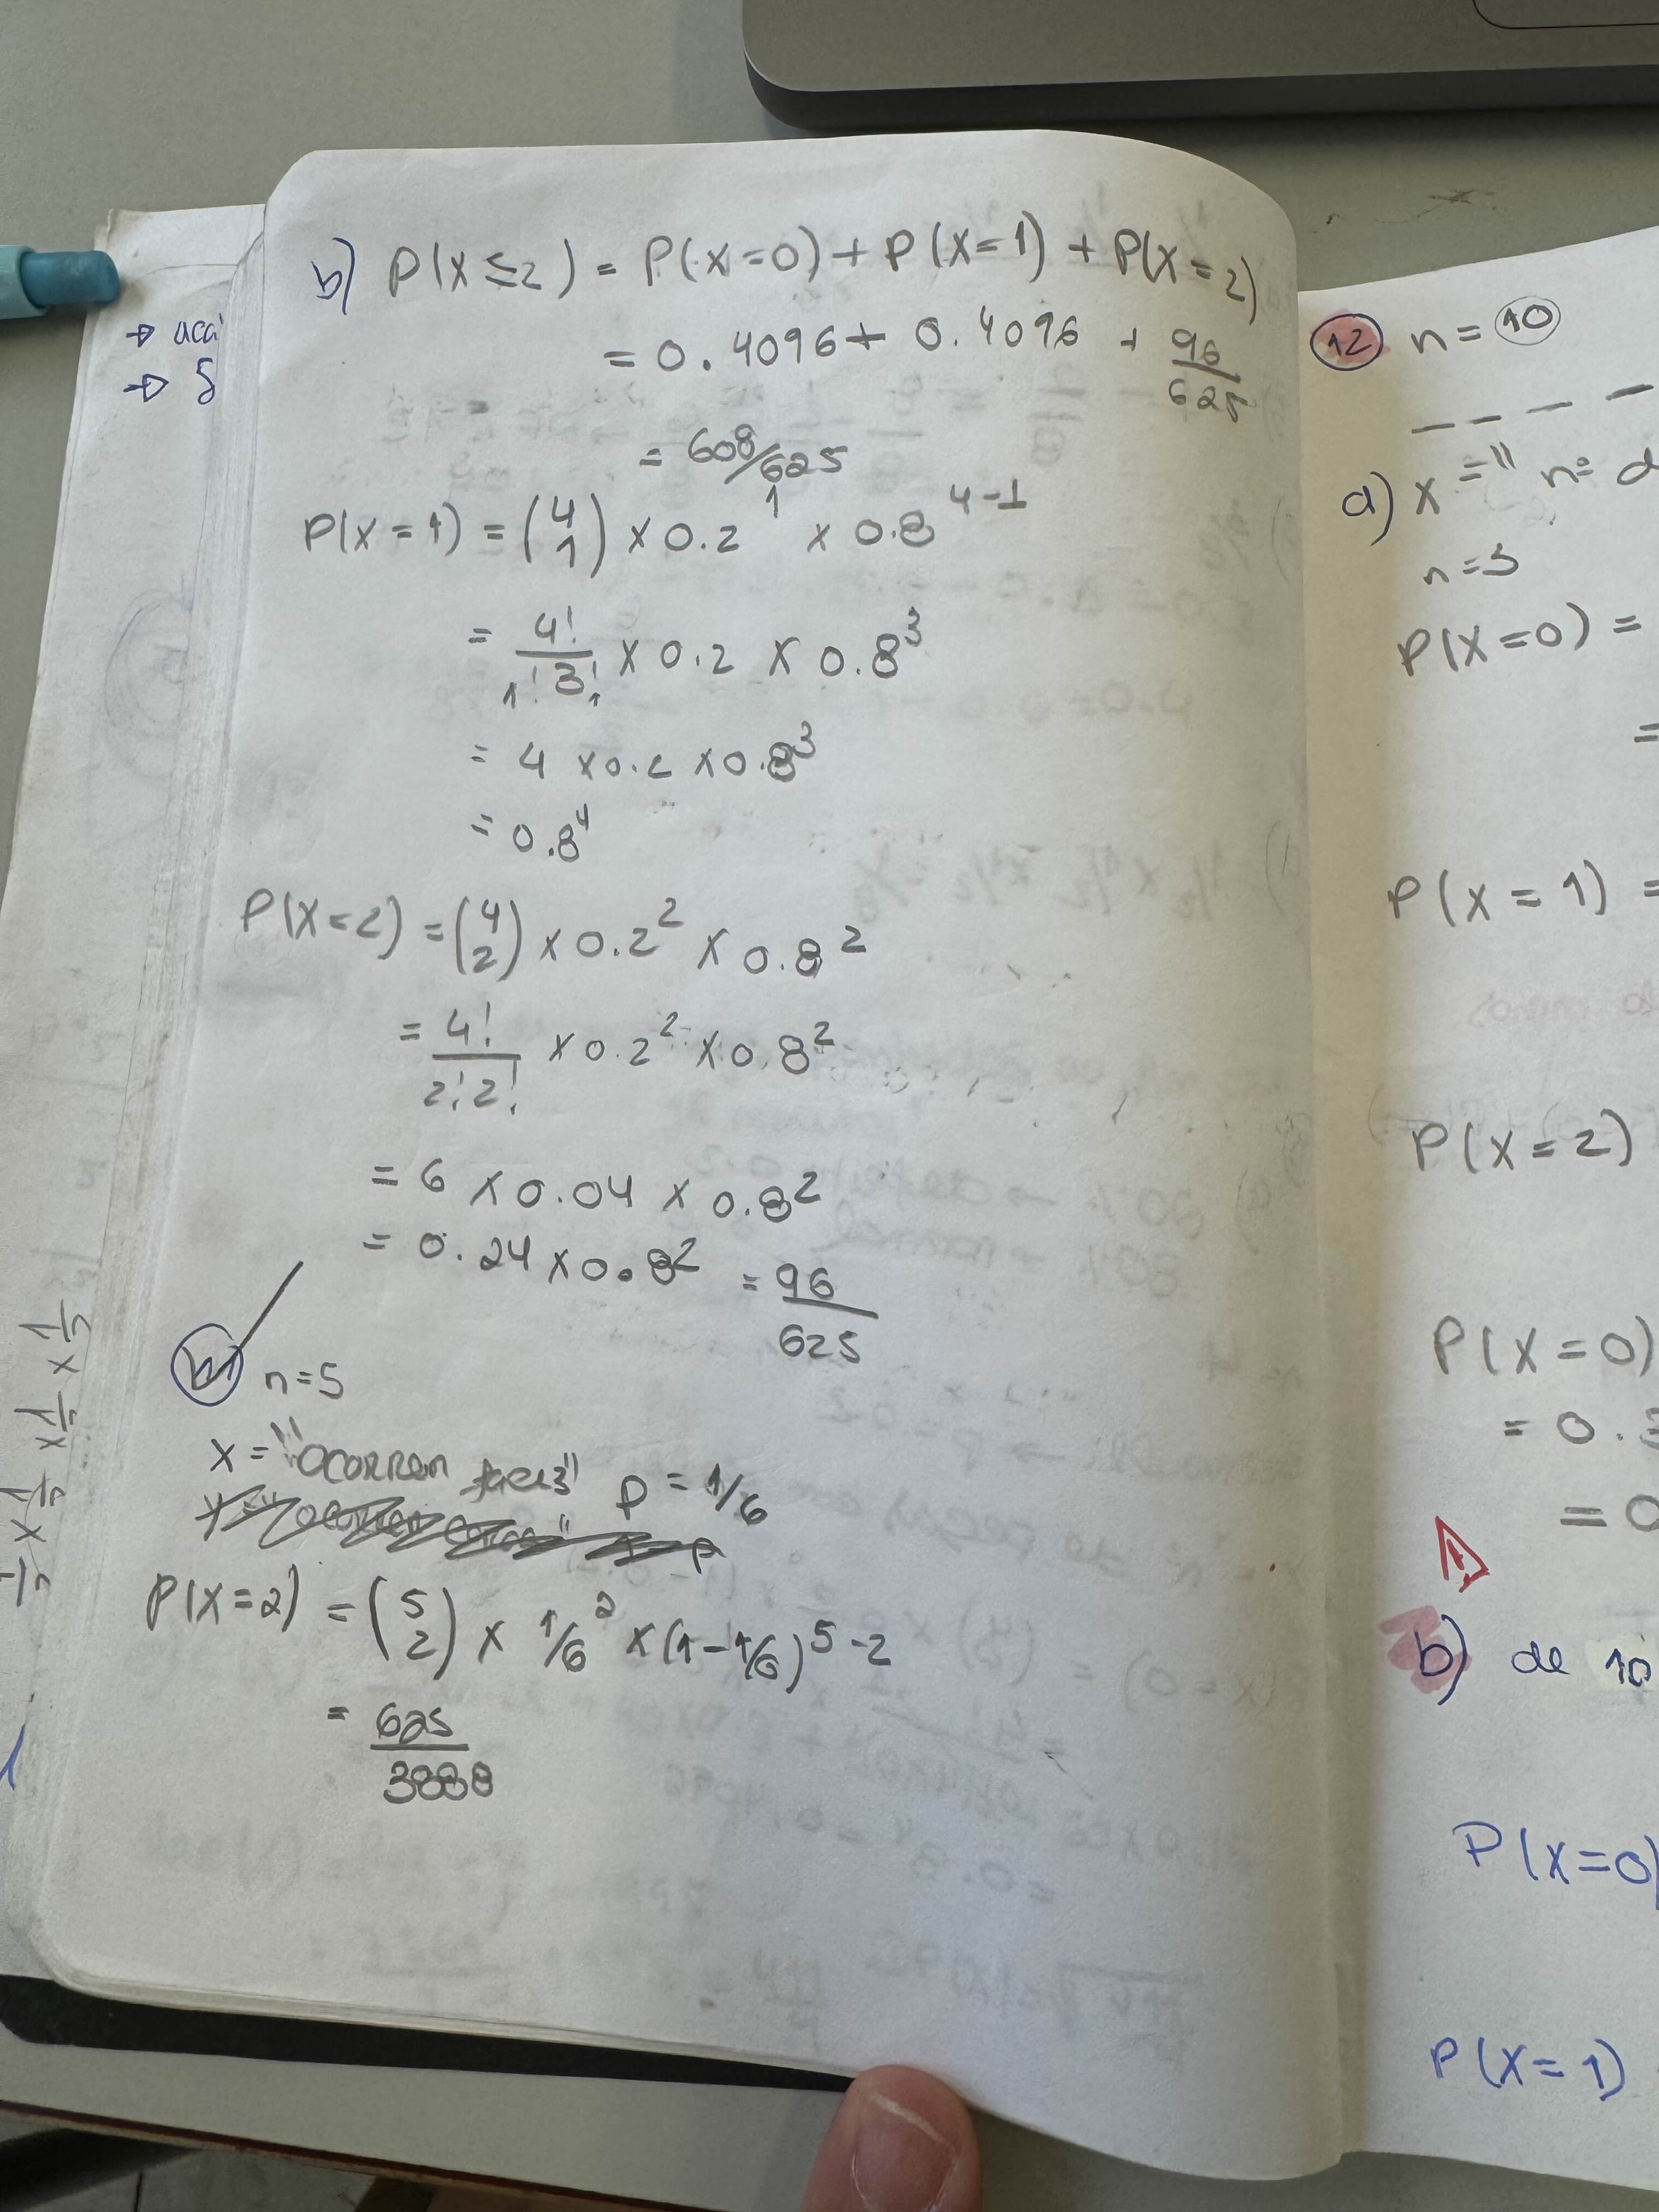 b) P(X≤2) = P(X=0) + P(X=1) + P(X=2)
= 0.4096 + 0.4096 + 96/625
= 608/625
P(X=1) = (4 1) × 0.2^1 × 0.8^4-1
= 4!/1!3! × 0.2 × 0.8^3
= 4 × 0.2 × 0.8^3
= 0.8^4
P(X=2) = (4 2) × 0.2^2 × 0.8^2
= 4!/2!2! × 0.2^2 × 0.8^2
= 6 × 0.04 × 0.8^2
= 0.24 × 0.8^2 = 96/625
n=5
X = "ocorren faces" p = 1/6
P(X=2) = (5 2) × 1/6^2 × (1-1/6)^5-2
= 625/3888
→ aca
→ 5
1/5 × 1/5 × 1/5 × 1/5
12 n = 10
a) X = " n=
n=5
P(X=0) =
=
P(X=1) =
P(X=2)
P(X=0)
= 0.3
= 0
b) de 10
P(X=0)
P(X=1)